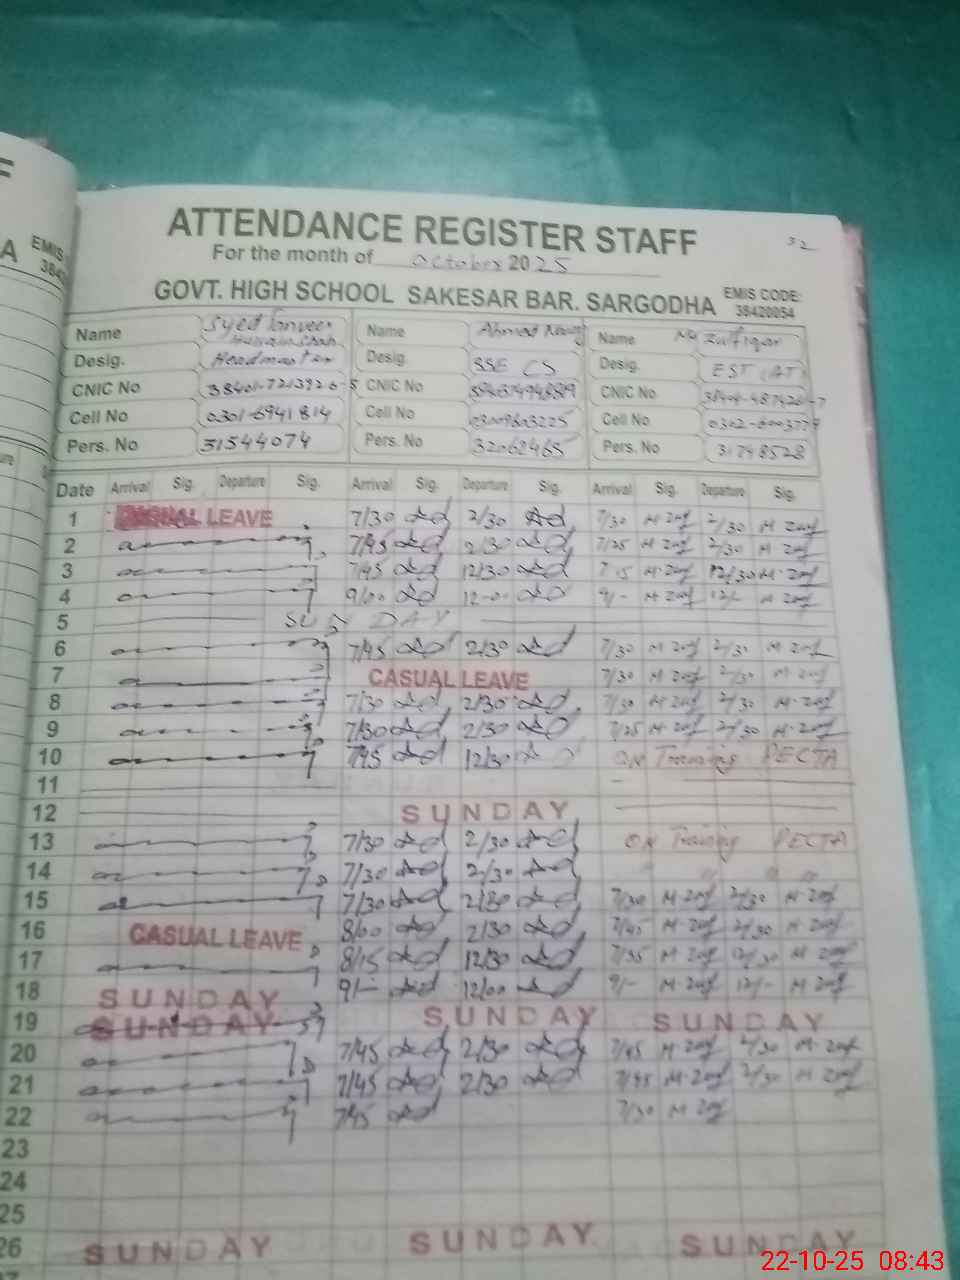 ATTENDANCE REGISTER STAFF
32
For the month of October 2025
GOVT. HIGH SCHOOL SAKESAR BAR. SARGODHA
EMIS CODE:
38420054
EMIS
Name Syed Tanveer Hussain Shah Name Ahmad Name M Zulfiqar
Desig. Headmaster Desig. SSE CS Desig. EST (AT)
CNIC No CNIC No CNIC No
Cell No 0301-6941814 Cell No 03009603225 Cell No
Pers. No 31544074 Pers. No 32062465 Pers. No 31798528
Date Arrival Sig. Departure Sig. Arrival Sig. Departure Sig. Arrival Sig. Departure Sig.
1 CASUAL LEAVE 7/30 2/30 7/30 M Zulf 2/30 M Zulf
2 7/45 2/30 7/25 M Zulf 2/30 M Zulf
3 7/45 12/30 7/15 M Zulf 12/30 M Zulf
4 9/00 12-00 9/- M Zulf 12/- M Zulf
5 SUNDAY
6 7/45 2/30 7/30 M Zulf 2/30 M Zulf
7 CASUAL LEAVE 7/30 M Zulf 2/30 M Zulf
8 7/30 2/30 7/30 M Zulf 2/30 M Zulf
9 7/30 2/30 7/25 M Zulf 2/30 M Zulf
10 7/45 12/30 ON Training PECTA
11
12 SUNDAY
13 7/30 2/30 ON Training PECTA
14 7/30 2/30 " " "
15 7/30 2/30 7/30 M Zulf 2/30 M Zulf
16 CASUAL LEAVE 8/00 2/30 7/45 M Zulf 2/30 M Zulf
17 8/15 12/30 7/35 M Zulf 12/30 M Zulf
18 SUNDAY 9/- 12/00 9/- M Zulf 12/- M Zulf
19 SUNDAY SUNDAY SUNDAY
20 7/45 2/30 7/45 M Zulf 2/30 M Zulf
21 7/45 2/30 7/45 M Zulf 2/30 M Zulf
22 7/45 7/30 M Zulf
23
24
25
26 SUNDAY SUNDAY SUNDAY
22-10-25 08:43